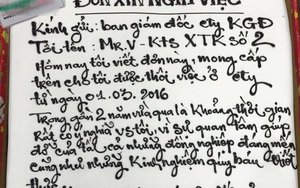 ĐƠN XIN NGHỈ VIỆC
Kính gửi: ban giám đốc cty KGĐ
Tôi tên: Mr.V - Kts XTK số 2
Hôm nay tôi viết đơn này, mong cấp
trên cho tôi được thôi việc ở cty
từ ngày 01.03.2016
Trong gần 2 năm vừa qua là khoảng thời gian
Rất có ý nghĩa vs tôi, vì sự quan tâm giúp
đỡ của tất cả những đồng nghiệp đang mến
cũng như những kinh nghiệm quý báu